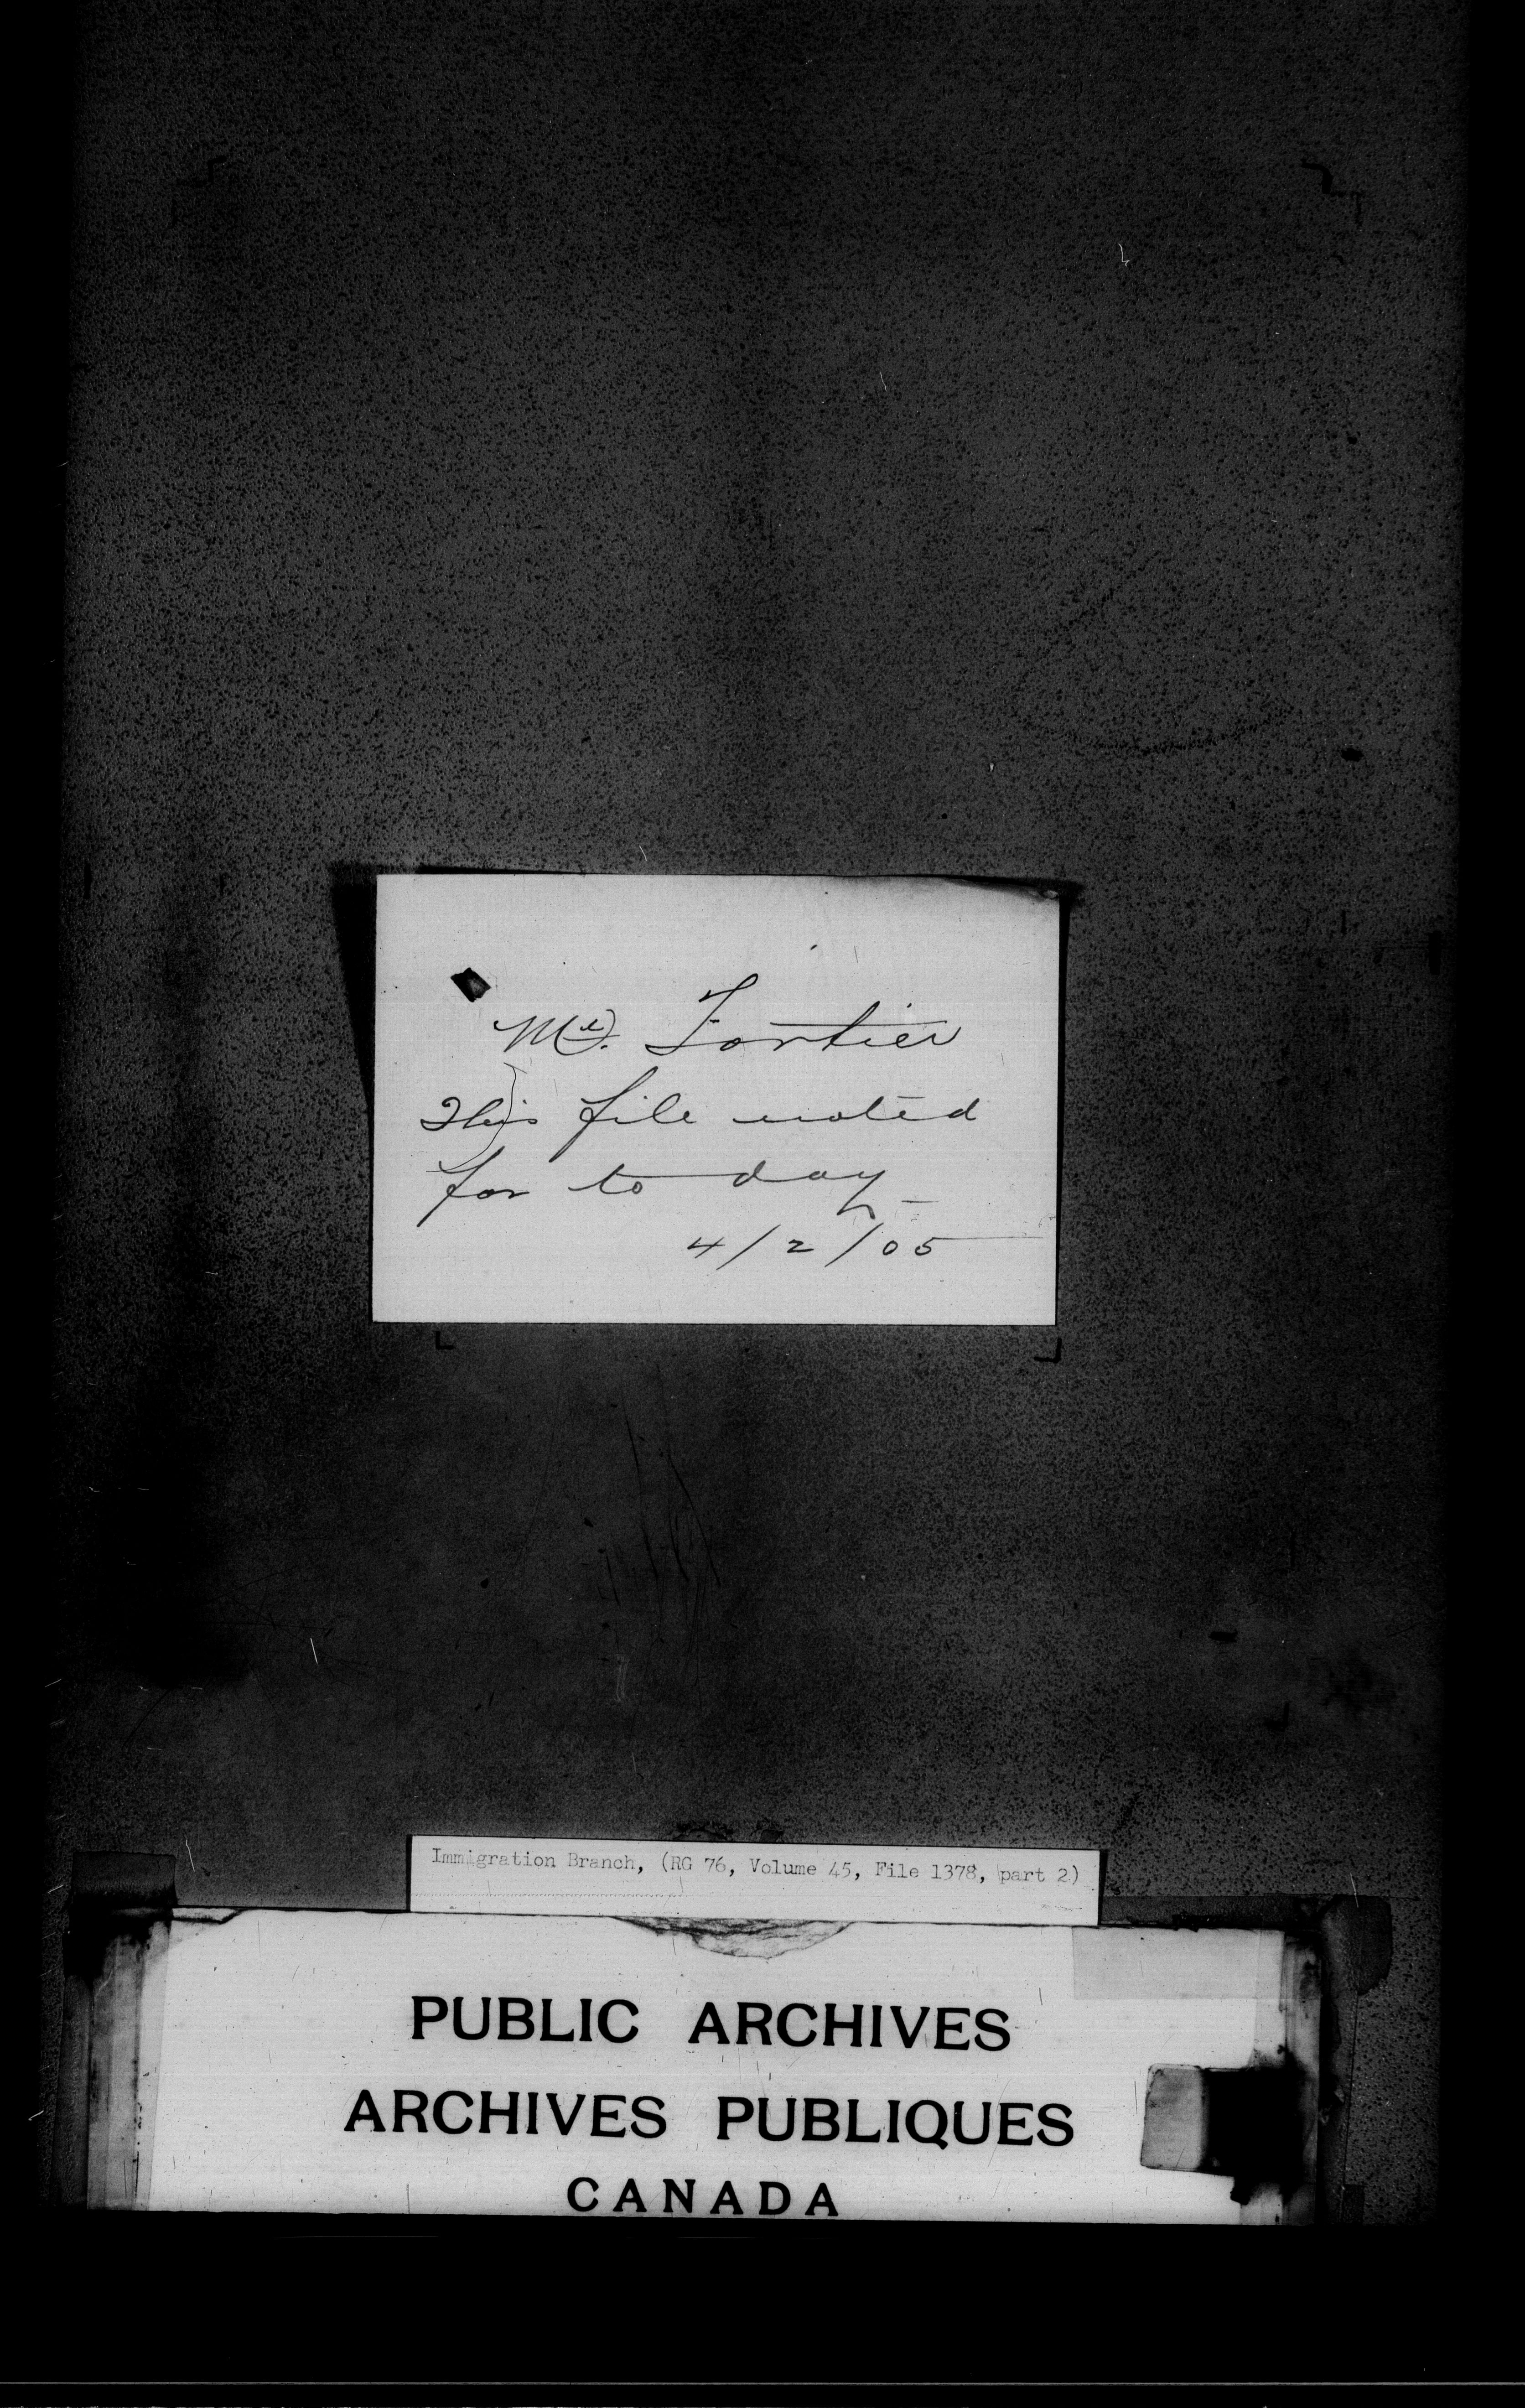 Mr. Fortier
This file noted
for to day
4/2/05
Immigration Branch, (RG 76, Volume 45, File 1378, part 2)
PUBLIC ARCHIVES
ARCHIVES PUBLIQUES
CANADA